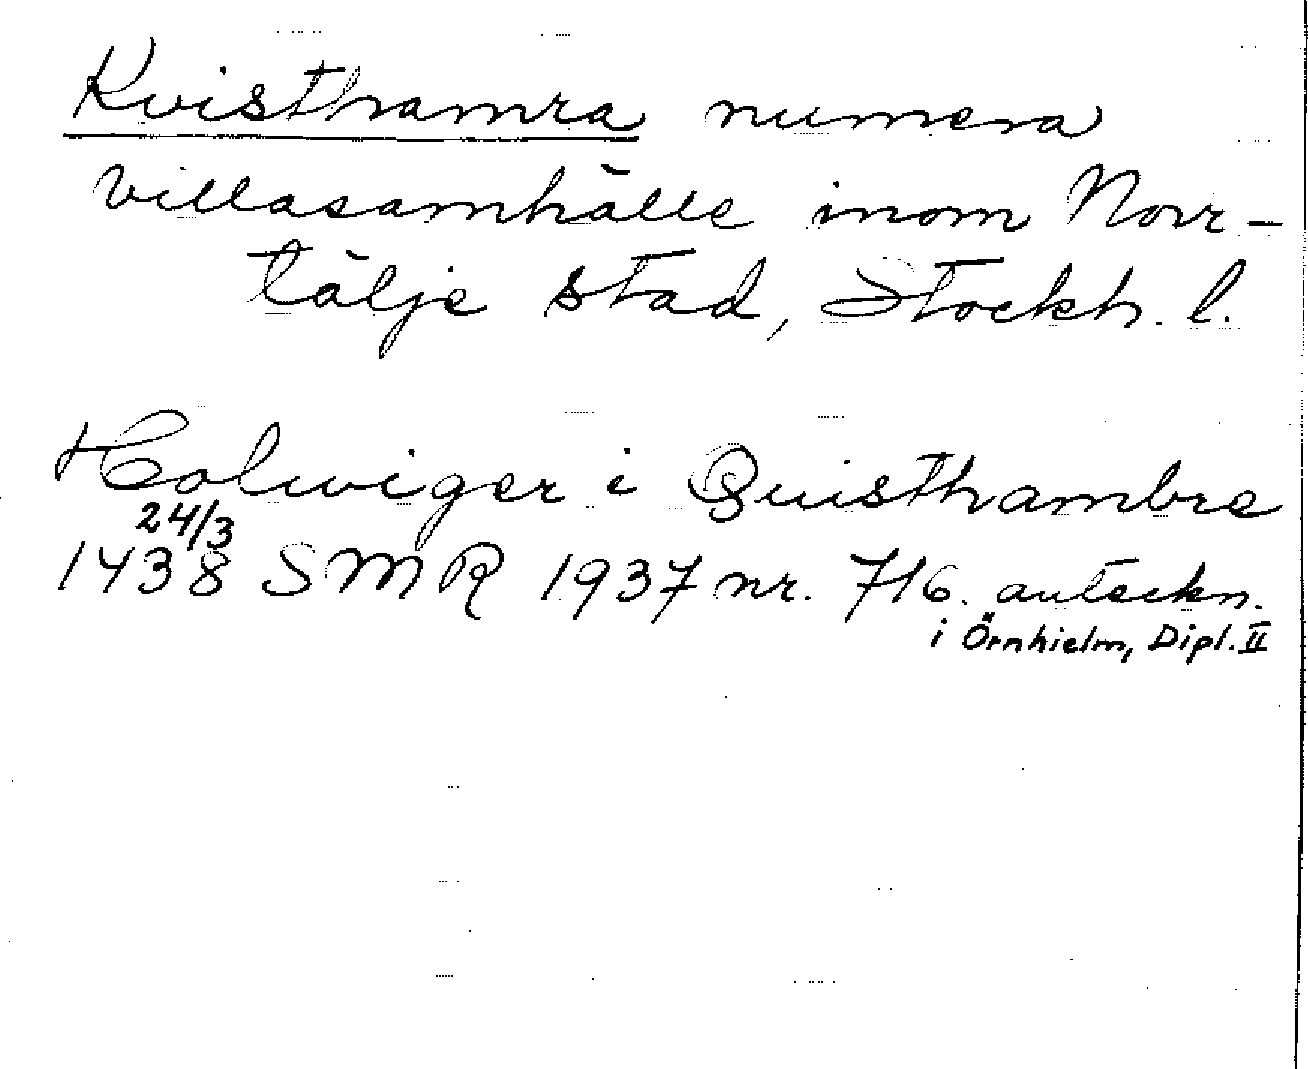 Kvisthamra numera
villasamhälle inom Norr-
tälje stad, Stockh. l.
Holwiger i Quisthambre
24/3
1438 SMR 1937 nr. 716. anteckn.
i Örnhielm, Dipl. II